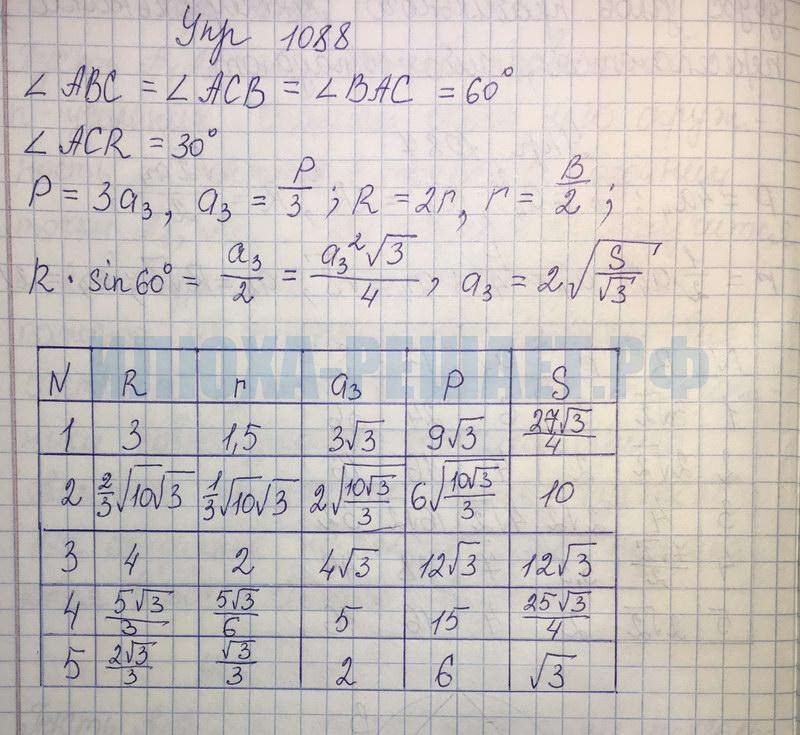 Упр 1088
∠ABC = ∠ACB = ∠BAC = 60°
∠ACR = 30°
P = 3a₃, a₃ = P/3; R = 2r, r = B/2;
R · sin60° = a₃/2 = a₃²√3/4, a₃ = 2√(S/√3)
ИЛЮХА-РЕШАЕТ.РФ
N R r a₃ P S
1 3 1,5 3√3 9√3 27√3/4
2 2/3√10√3 1/3√10√3 2√(10√3/3) 6√(10√3/3) 10
3 4 2 4√3 12√3 12√3
4 5√3/3 5√3/6 5 15 25√3/4
5 2√3/3 √3/3 2 6 √3